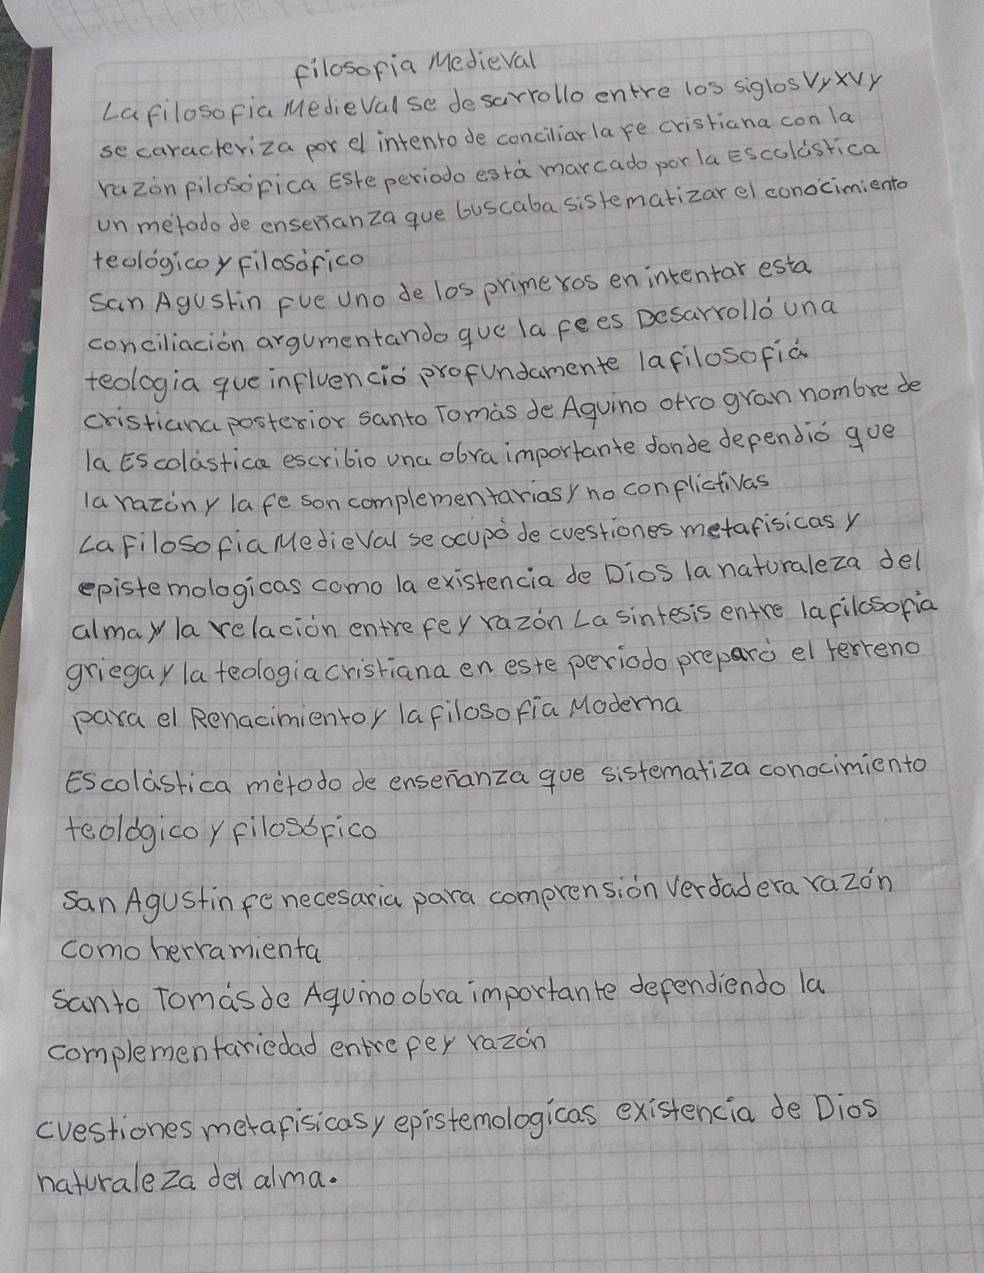 filosofia Medieval
La filosofia Medieval se desarrollo entre los siglos V y XV y
se caracteriza por el intento de conciliar la fe cristiana con la
razón filosófica Este periodo está marcado por la Escolástica
un método de enseñanza que buscaba sistematizar el conocimiento
teológico y filosófico
San Agustin fue uno de los primeros en intentar esta
conciliación argumentando que la fe es Desarrolló una
teologia que influenció profundamente la filosofiá
cristiana posterior santo Tomás de Aquino otro gran nombre de
la Escolástica escribio una obra importante donde dependió que
la razón y la fe son complementarias y no conflictivas
La Filosofia Medieval se ocupó de cuestiones metafisicas y
epistemologicas como la existencia de Dios la naturaleza del
alma y la relación entre fe y razón La sintesis entre la filosofia
griega y la teologia cristiana en este periodo preparó el terreno
para el Renacimiento y la filosofía Moderna
Escolástica método de enseñanza que sistematiza conocimiento
teológico y filosófico
San Agustin fe necesaria para comprensión verdadera razón
como herramienta
Santo Tomás de Aquino obra importante defendiendo la
complementariedad entre fe y razón
cuestiones metafísicas y epistemologícas existencia de Dios
naturaleza del alma.